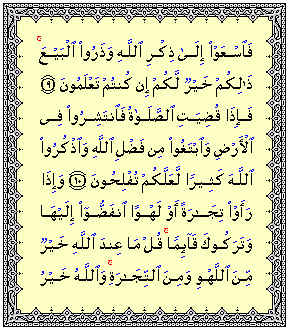 فَٱسْعَوْا۟ إِلَىٰ ذِكْرِ ٱللَّهِ وَذَرُوا۟ ٱلْبَيْعَ ۚ
ذَٰلِكُمْ خَيْرٌۭ لَّكُمْ إِن كُنتُمْ تَعْلَمُونَ ﴿٩﴾
فَإِذَا قُضِيَتِ ٱلصَّلَوٰةُ فَٱنتَشِرُوا۟ فِى
ٱلْأَرْضِ وَٱبْتَغُوا۟ مِن فَضْلِ ٱللَّهِ وَٱذْكُرُوا۟
ٱللَّهَ كَثِيرًۭا لَّعَلَّكُمْ تُفْلِحُونَ ﴿١٠﴾ وَإِذَا
رَأَوْا۟ تِجَـٰرَةً أَوْ لَهْوًا ٱنفَضُّوٓا۟ إِلَيْهَا
وَتَرَكُوكَ قَآئِمًۭا ۚ قُلْ مَا عِندَ ٱللَّهِ خَيْرٌۭ
مِّنَ ٱللَّهْوِ وَمِنَ ٱلتِّجَـٰرَةِ ۚ وَٱللَّهُ خَيْرُ